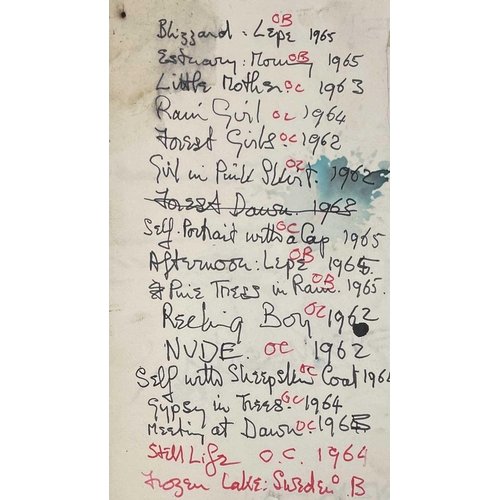 Blizzard: Lepe OB 1965
Estuary: Morning OB 1965
Little Mother OC 1963
Rain Girl OC 1964
Forest Girls OC 1962
Girl in Pink Skirt. OC 1962
Forest Dawn. 1963
Self-Portrait with a Cap OC 1965
Afternoon: Lepe OB 1965.
Pine Trees in Rain. OB 1965.
Boy OC 1962
NUDE. OC 1962
Self with Sheepskin Coat OC 1964
Gypsy in Trees. OC 1964
Meeting at Dawn. OC 1965
Still Life O.C. 1964
Frozen Lake: Sweden O B